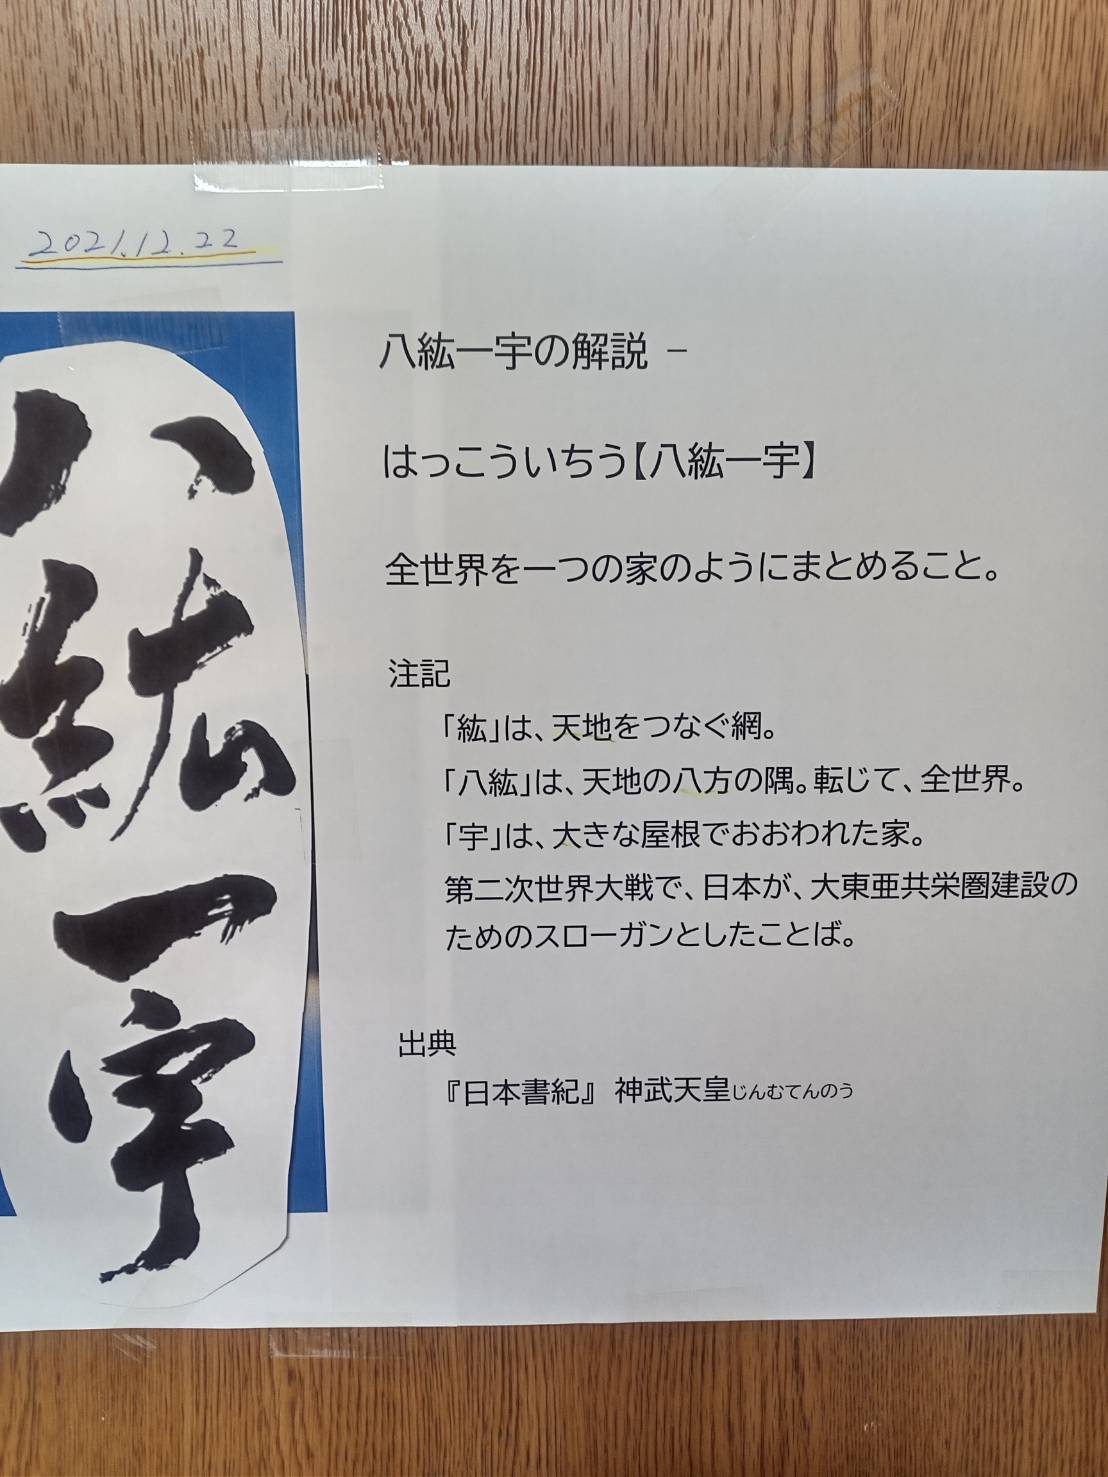 2021.12.22
八紘一宇
八紘一宇の解説 –
はっこういちう【八紘一宇】
全世界を一つの家のようにまとめること。
注記
「紘」は、天地をつなぐ網。
「八紘」は、天地の八方の隅。転じて、全世界。
「宇」は、大きな屋根でおおわれた家。
第二次世界大戦で、日本が、大東亜共栄圏建設の
ためのスローガンとしたことば。
出典
『日本書紀』 神武天皇じんむてんのう